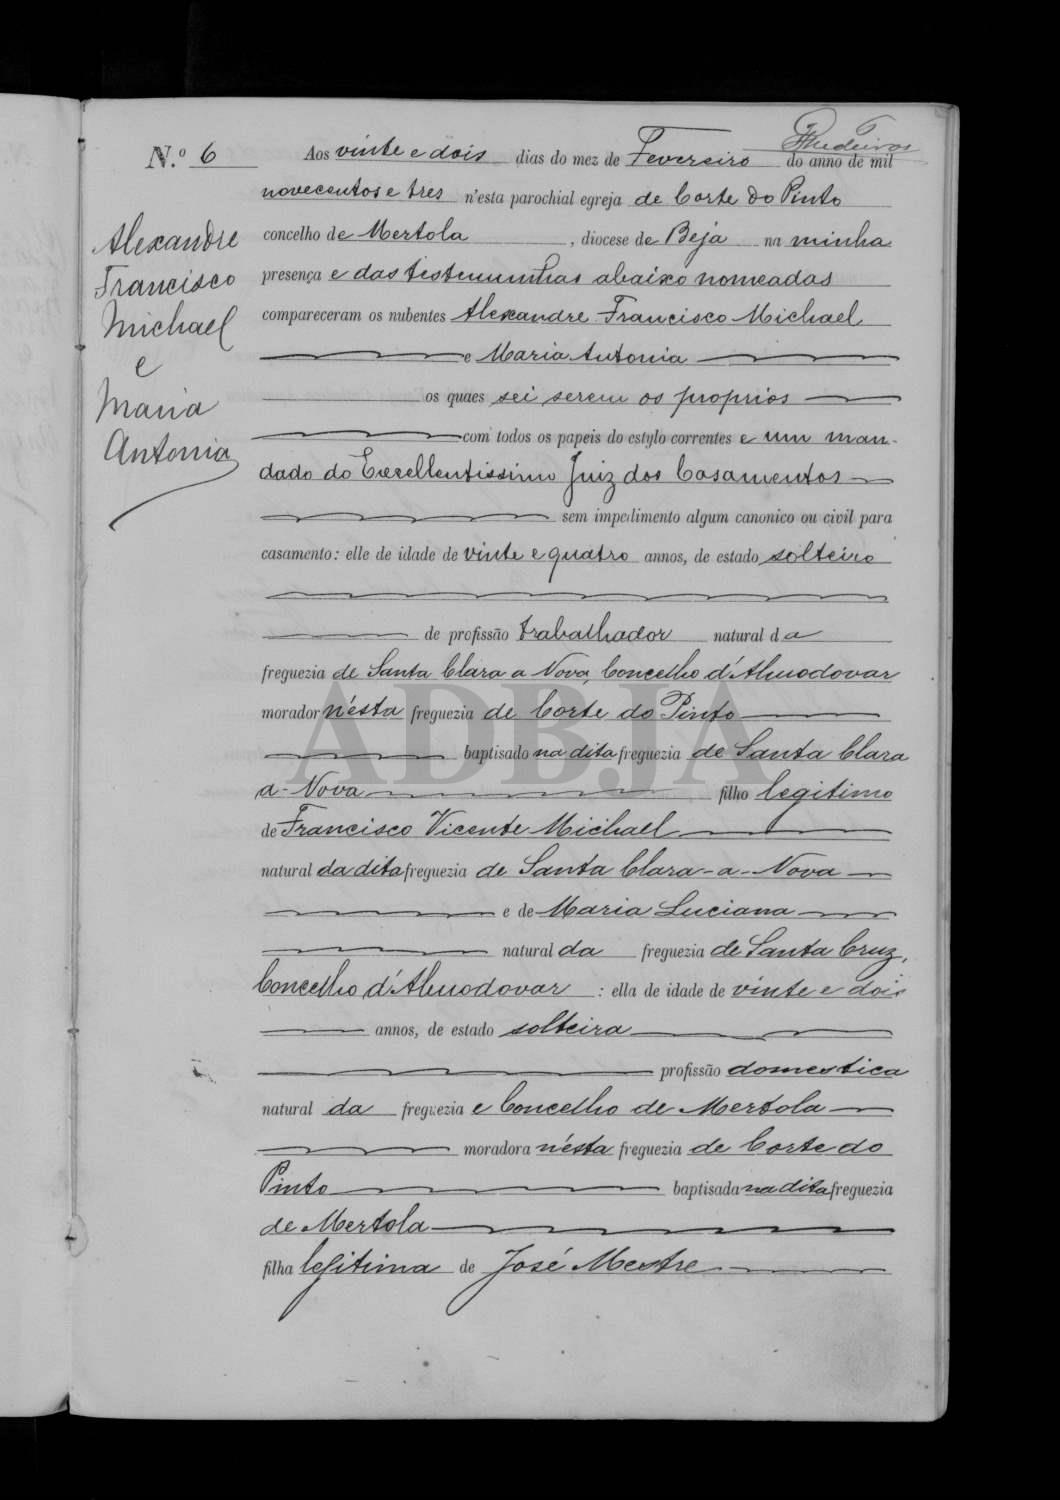 Medeiros
N.º 6 Aos vinte e dois dias do mez de Fevereiro do anno de mil
novecentos e tres n'esta parochial egreja de Corte do Pinto
concelho de Mertola, diocese de Beja na minha
presença e das testemunhas abaixo nomeadas
compareceram os nubentes Alexandre Francisco Michael
e Maria Antonia
os quaes sei serem os proprios
com todos os papeis do estylo correntes e um man-
dado do Excellentissimo Juiz dos Casamentos
sem impedimento algum canonico ou civil para
casamento: elle de idade de vinte e quatro annos, de estado solteiro
de profissão trabalhador natural da
freguezia de Santa Clara a Nova, Concelho d'Almodovar
morador n'ésta freguezia de Corte do Pinto
baptisado na dita freguezia de Santa Clara
a-Nova filho legitimo
de Francisco Vicente Michael
natural da dita freguezia de Santa Clara-a-Nova
e de Maria Luciana
natural da freguezia de Santa Cruz,
Concelho d'Almodovar: ella de idade de vinte e dois
annos, de estado solteira
profissão domestica
natural da freguezia e Concelho de Mertola
moradora n'ésta freguezia de Corte do
Pinto baptisada na dita freguezia
de Mertola
filha legitima de José Mestre
Alexandre
Francisco
Michael
e
Maria
Antonia
ADBJA